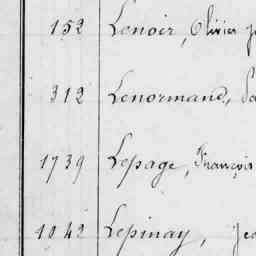 152 Lenoir, Olivier
312 Lenormand,
1739 Lepage, François
1042 Lepinay,